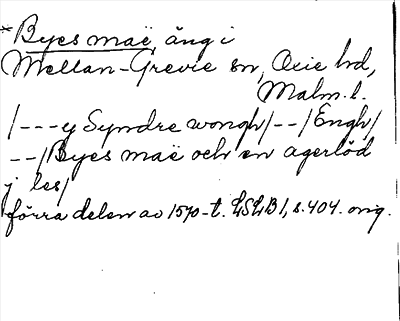 * Byes maë, äng i
Mellan-Grevie sn, Oxie hd,
Malm. l.
/---y Syndre wongh/--/Engh/
--/Byes maë och en agerlöd
j les/
förra delen av 1570-t. LSLB I, s. 404. orig.